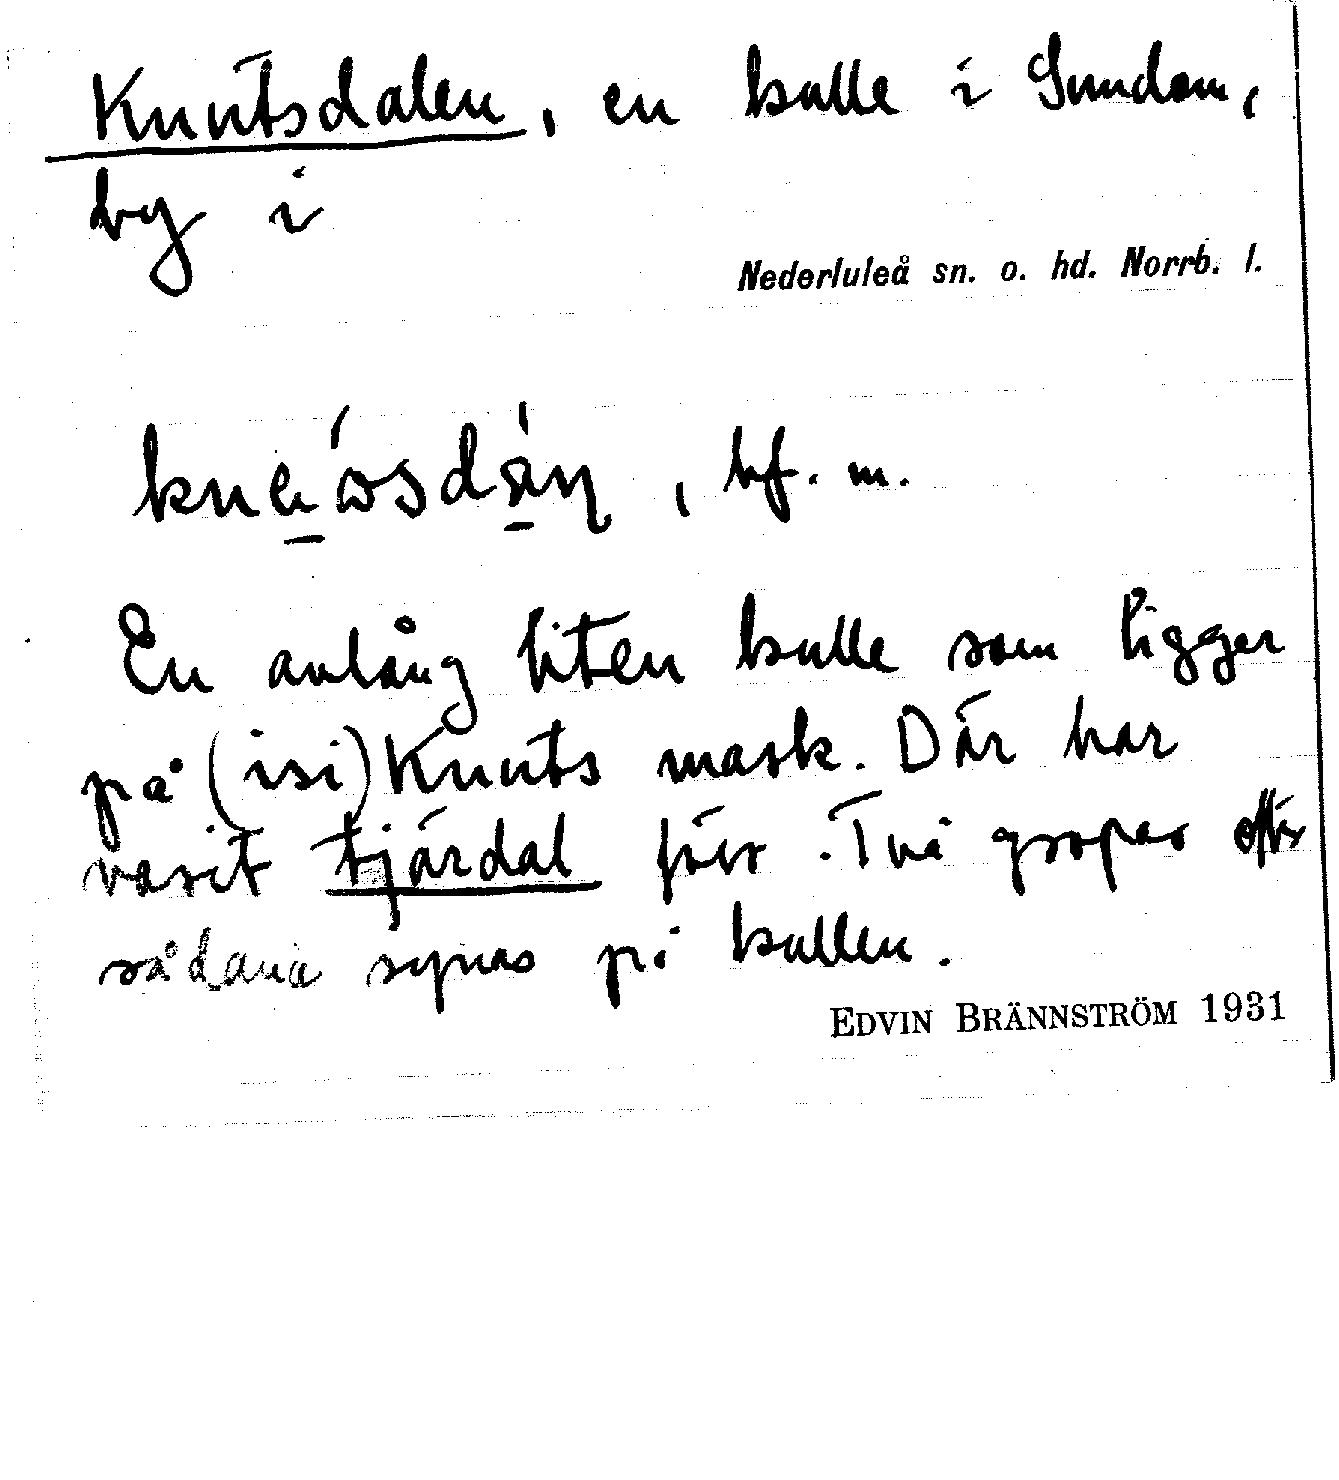 Knutsdalen, en kulle i Sundom,
by i
Nederluleå sn. o. hd. Norrb. l.
bf. m.
En avlång liten kulle som ligger
på (isi) Knuts mark. Där har
varit tjärdal förr. Två gropar efter
sådana synas på kullen.
EDVIN BRÄNNSTRÖM 1931